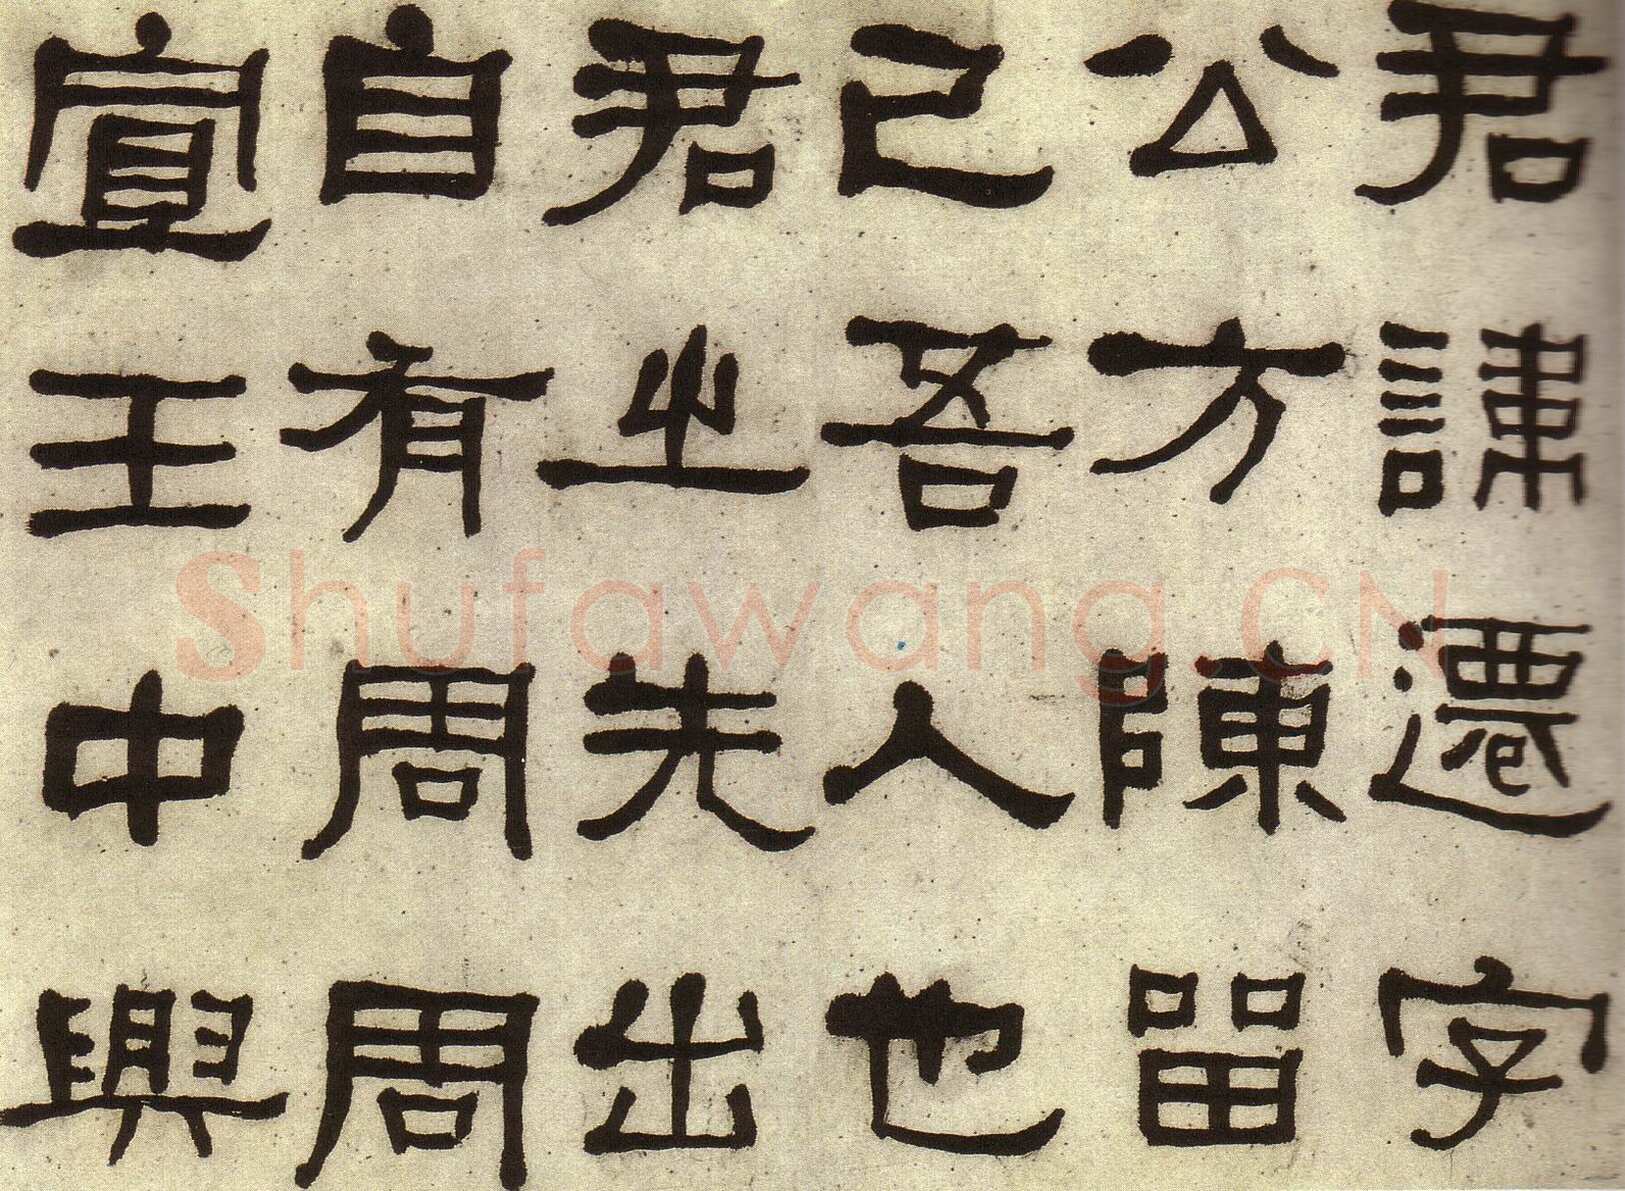 君諱遷字
公方陳留
己吾人也
君之先出
自有周周
宣王中興
Shufawang.CN